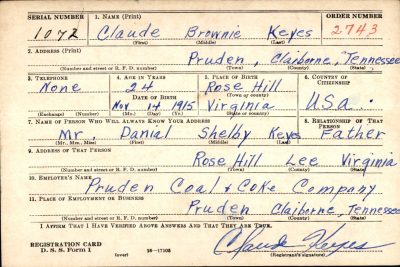 SERIAL NUMBER 1. NAME (Print) ORDER NUMBER
1072 Claude Brownie Keyes 2743
(First) (Middle) (Last)
2. ADDRESS (Print)
Pruden, Claiborne, Tennessee
(Number and street or R. F. D. number) (Town) (County) (State)
3. TELEPHONE 4. AGE IN YEARS 5. PLACE OF BIRTH 6. COUNTRY OF CITIZENSHIP
None 24 Rose Hill
DATE OF BIRTH (Town or county)
Nov 14 1915 Virginia USA.
(Exchange) (Number) (Mo.) (Day) (Yr.) (State or country)
7. NAME OF PERSON WHO WILL ALWAYS KNOW YOUR ADDRESS 8. RELATIONSHIP OF THAT PERSON
Mr. Danial Shelby Keyes Father
(Mr., Mrs., Miss) (First) (Middle) (Last)
9. ADDRESS OF THAT PERSON
Rose Hill Lee Virginia
(Number and street or R. F. D. number) (Town) (County) (State)
10. EMPLOYER'S NAME
Pruden Coal & Coke Company
11. PLACE OF EMPLOYMENT OR BUSINESS
Pruden Claiborne, Tennessee
(Number and street or R. F. D. number) (Town) (County) (State)
I AFFIRM THAT I HAVE VERIFIED ABOVE ANSWERS AND THAT THEY ARE TRUE.
REGISTRATION CARD
D. S. S. Form 1 (over) 16—17105 Claude Keyes
(Registrant's signature)